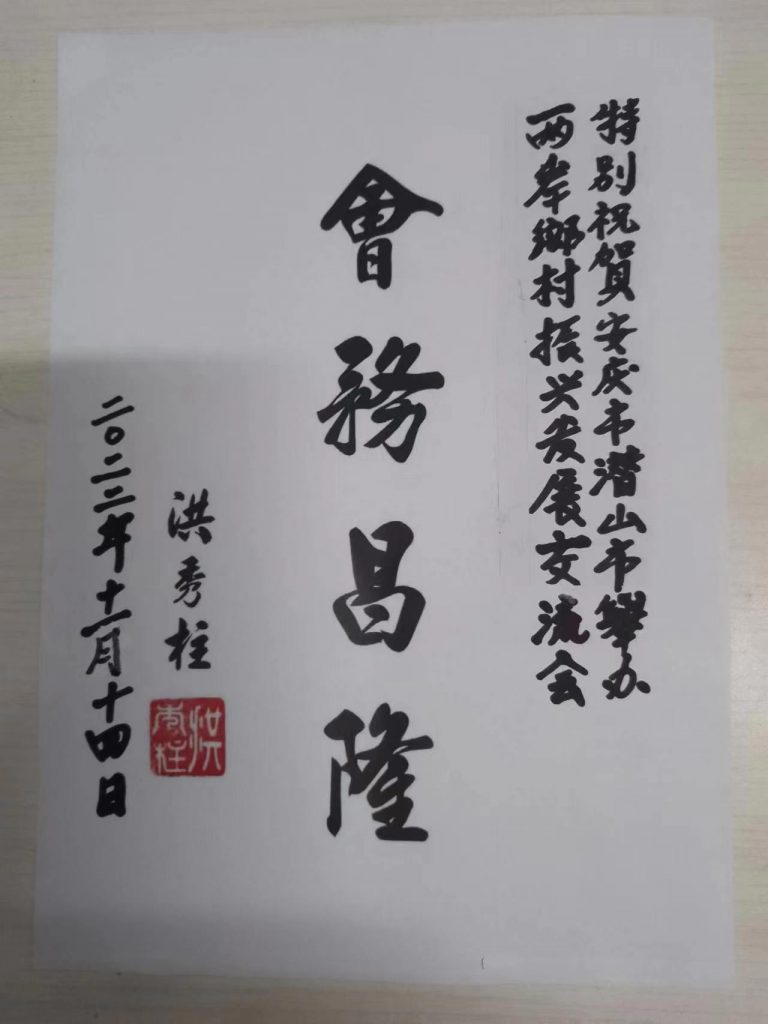 特别祝賀安庆市潜山市舉办
两岸鄉村振兴发展交流会
會務昌隆
洪秀柱
洪秀柱
二〇二二年十一月十四日